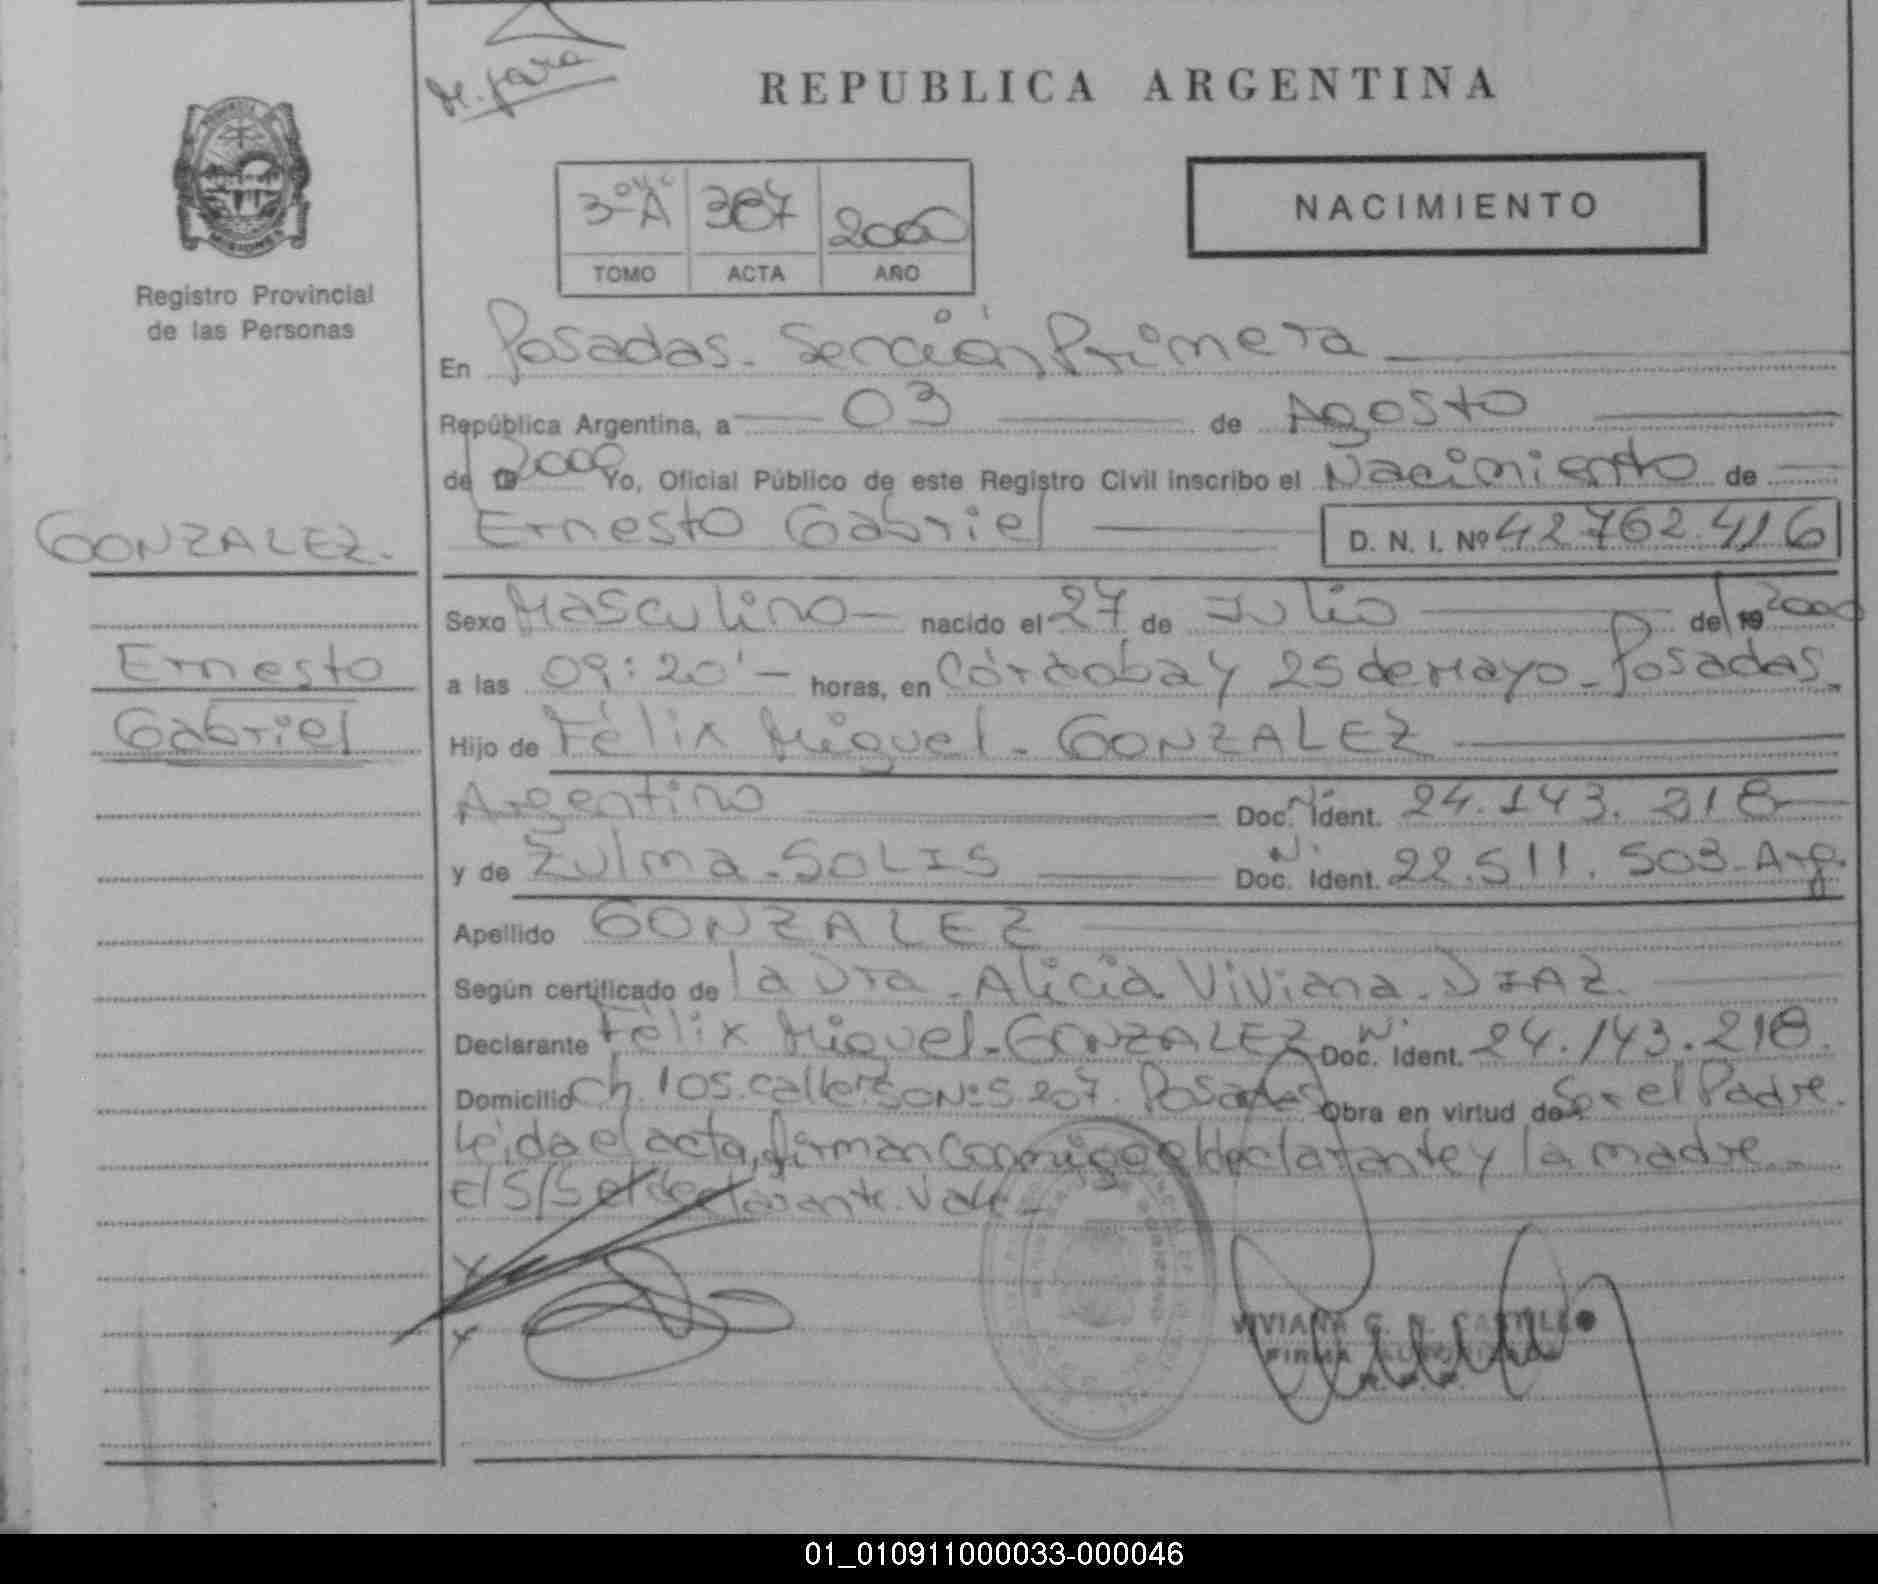 REPUBLICA ARGENTINA
NACIMIENTO
3º A 387 2000
TOMO ACTA AÑO
MISIONES
Registro Provincial
de las Personas
En Posadas - Sección Primera
República Argentina, a 03 de Agosto
de 2000 Yo, Oficial Público de este Registro Civil inscribo el Nacimiento de
GONZALEZ.
Ernesto Gabriel D. N. I. Nº 42762.416
Sexo Masculino - nacido el 27 de Julio de 19 2000
Ernesto
a las 09:20' - horas, en Córdoba y 25 de Mayo - Posadas.
Gabriel
Hijo de Félix Miguel - GONZALEZ
Argentino Doc. Ident. Nº 24.143.218
y de Zulma - SOLIS Doc. Ident. Nº 22.511.503 - Arg.
Apellido GONZALEZ
Según certificado de la Dra. Alicia Viviana - DIAZ.
Declarante Félix Miguel - GONZALEZ Doc. Ident. Nº 24.143.218.
Domicilio Ch. 105. calle Nº 5207. Posadas Obra en virtud de Ser el Padre.
Leída el acta, firman conmigo el declarante y la madre -
E/S/S el declarante. Vale -
X
X
VIVIANA G. R. CASTILLO
FIRMA AUTORIZADA
01_010911000033-000046